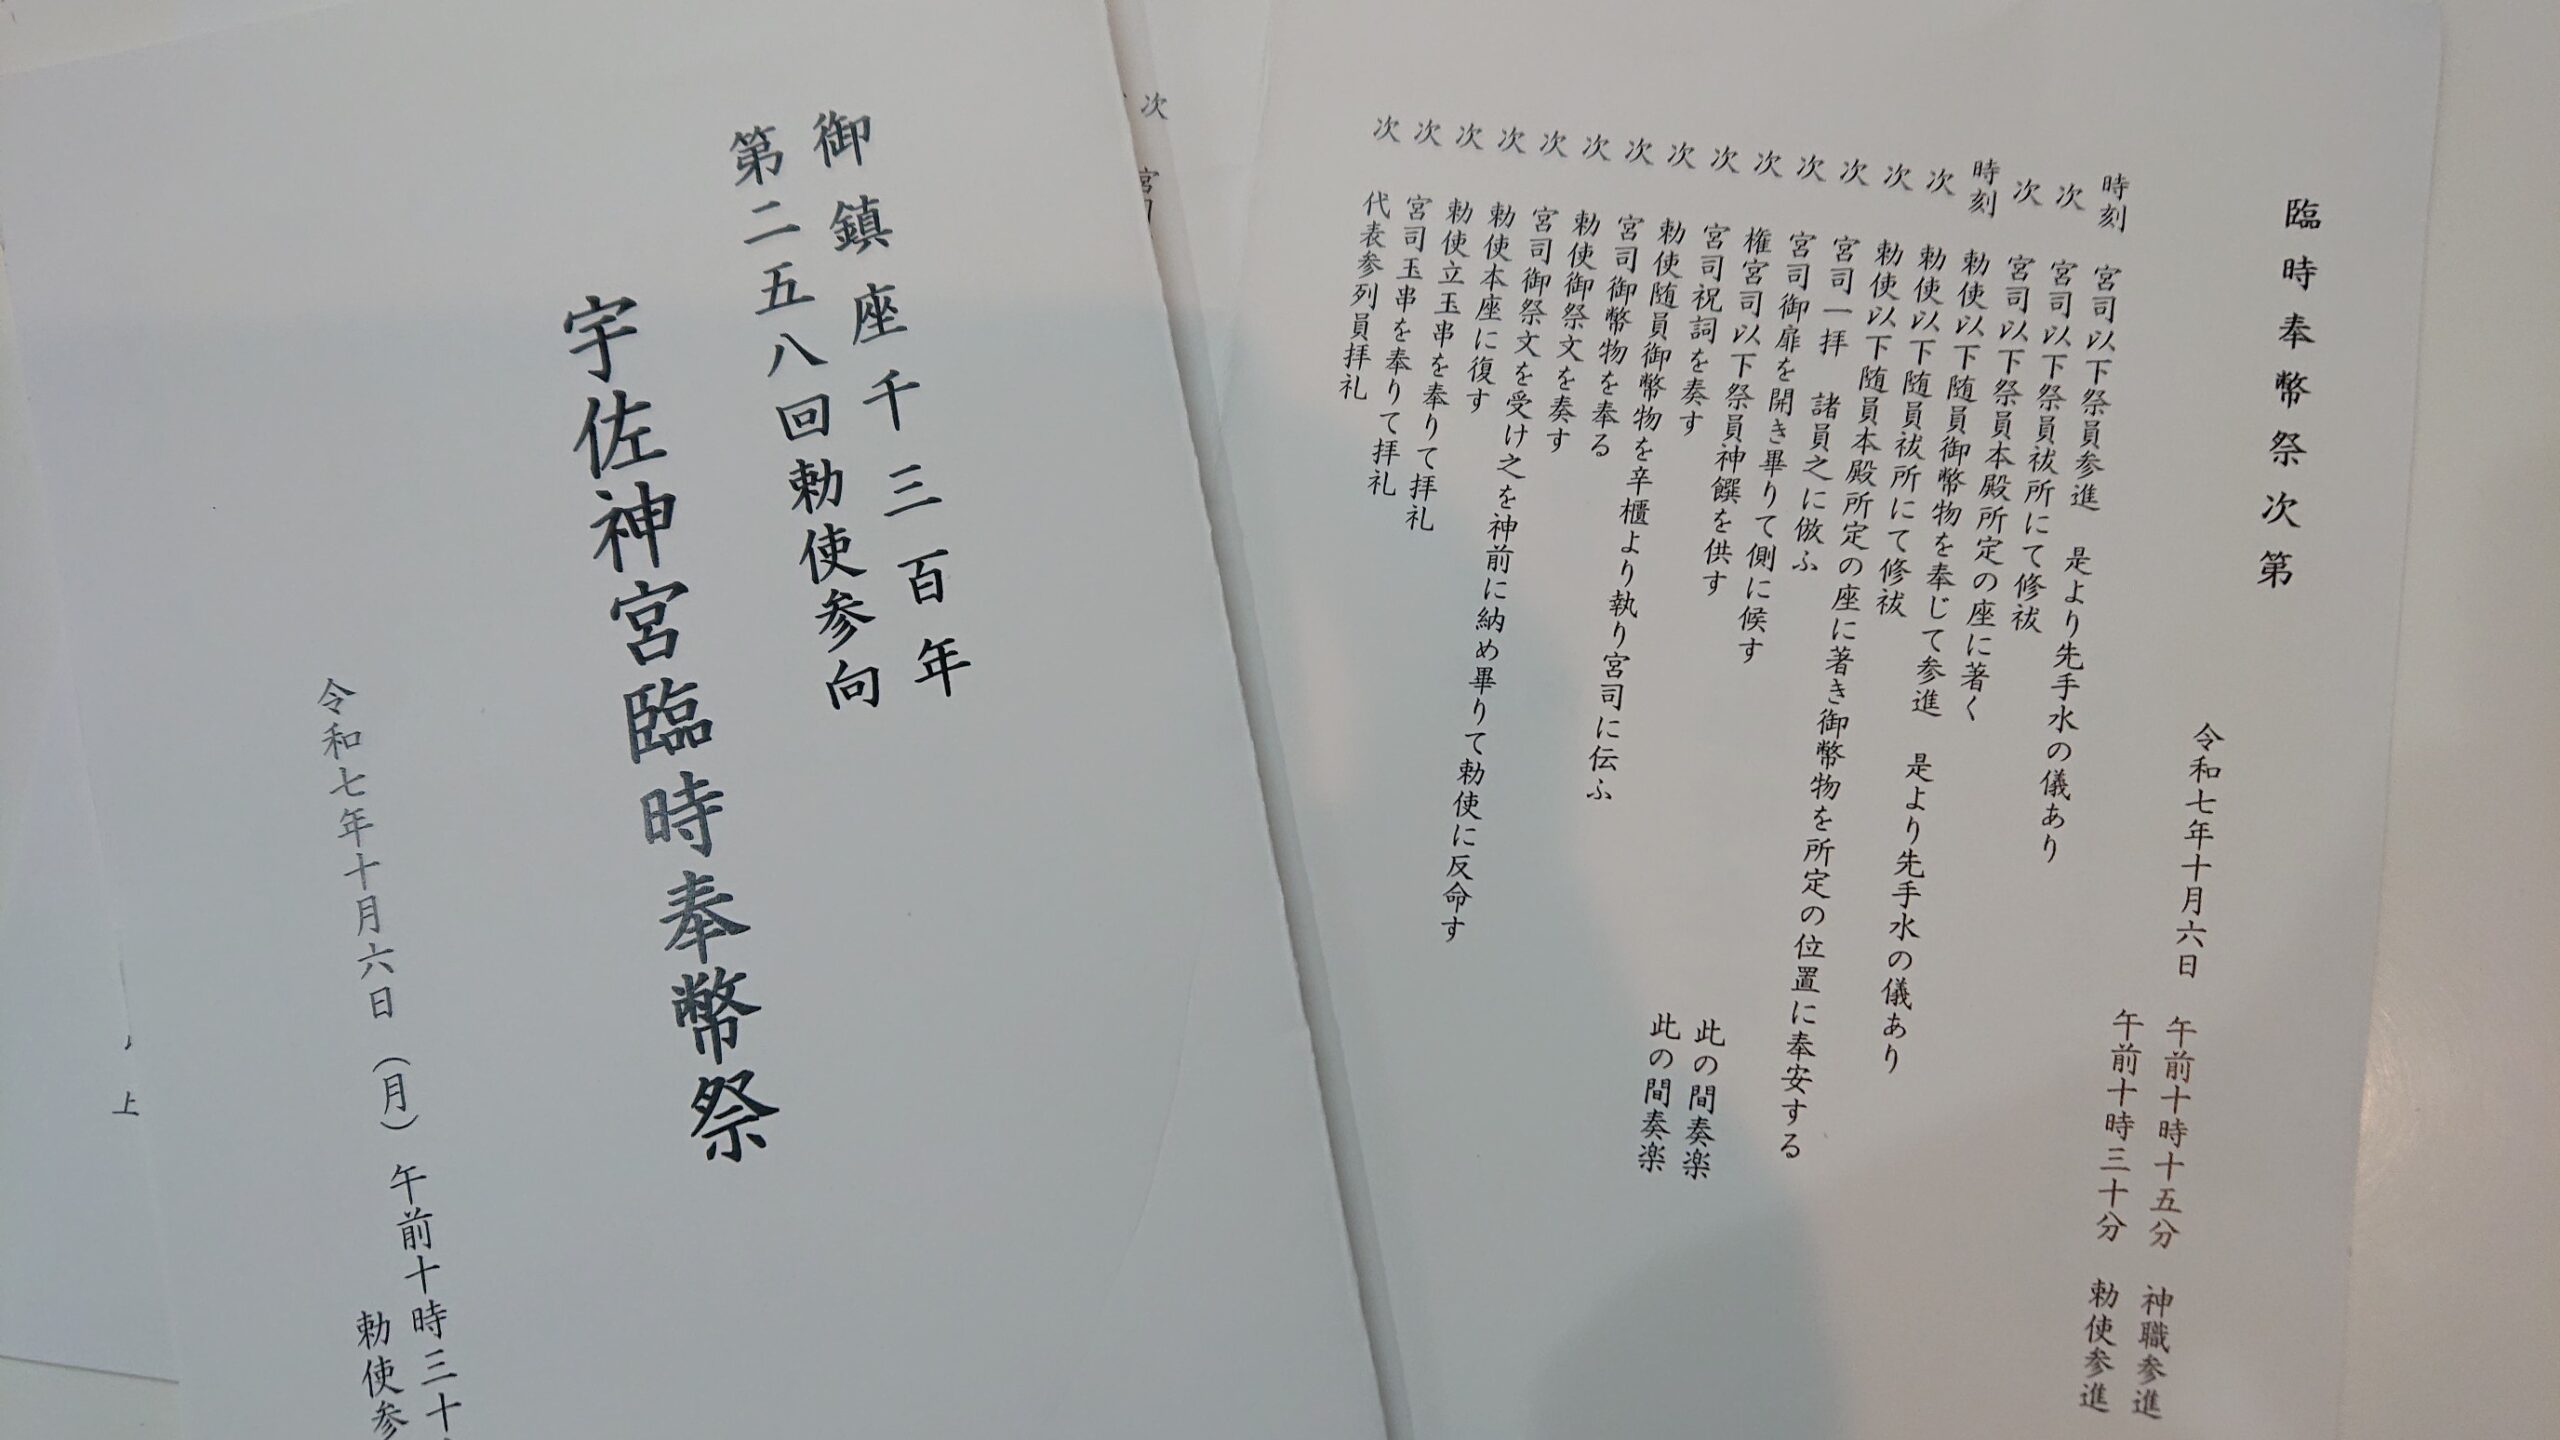 臨時奉幣祭次第
令和七年十月六日　午前十時十五分　神職参進
午前十時三十分　勅使参進
時刻　宮司以下祭員参進　是より先手水の儀あり
次　宮司以下祭員祓所にて修祓
次　宮司以下祭員本殿所定の座に著く
時刻　勅使以下随員御幣物を奉じて参進　是より先手水の儀あり
次　勅使以下随員祓所にて修祓
次　勅使以下随員本殿所定の座に著き御幣物を所定の位置に奉安する
次　宮司一拝　諸員之に倣ふ
次　宮司御扉を開き畢りて側に候す　此の間奏楽
次　権宮司以下祭員神饌を供す　此の間奏楽
次　宮司祝詞を奏す
次　勅使随員御幣物を辛櫃より執り宮司に伝ふ
次　宮司御幣物を奉る
次　勅使御祭文を奏す
次　宮司御祭文を受け之を神前に納め畢りて勅使に反命す
次　勅使本座に復す
次　勅使立玉串を奉りて拝礼
次　宮司玉串を奉りて拝礼
次　代表参列員拝礼
次　宮司
御鎮座千三百年
第二五八回勅使参向
宇佐神宮臨時奉幣祭
令和七年十月六日（月）午前十時三十
勅使参
上